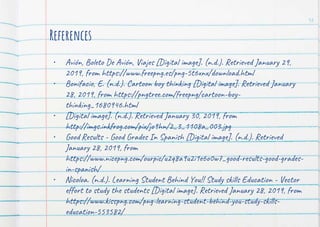 References
• Avión, Boleto De Avión, Viajes [Digital image]. (n.d.). Retrieved January 29,
2019, from https://www.freepng.es/png-5t6enx/download.html
• Bonifacio, E. (n.d.). Cartoon boy thinking [Digital image]. Retrieved January
28, 2019, from https://pngtree.com/freepng/cartoon-boy-
thinking_1680946.html
• [Digital image]. (n.d.). Retrieved January 30, 2019, from
• Good Results - Good Grades In Spanish [Digital image]. (n.d.). Retrieved
January 28, 2019, from
in-spanish/
• Nicoloa. (n.d.). Learning Student Behind You!! Study skills Education - Vector
effort to study the students [Digital image]. Retrieved January 28, 2019, from
https://www.kisspng.com/png-learning-student-behind-you-study-skills-
education-553582/